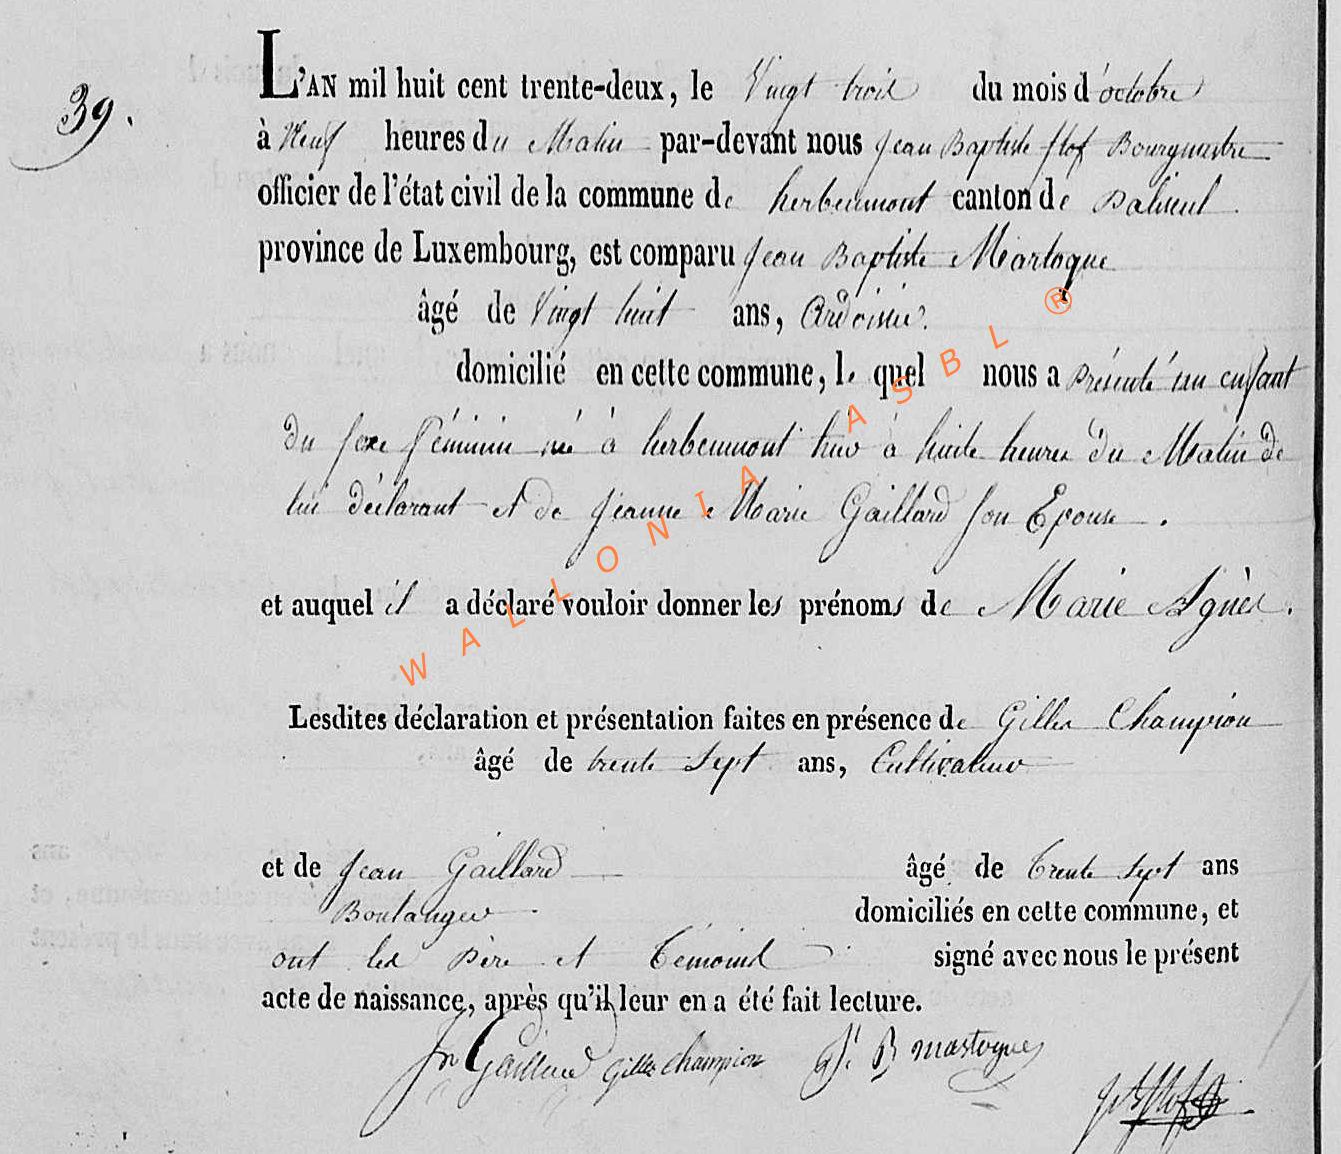 39.
L'AN mil huit cent trente-deux, le Vingt trois du mois d'octobre
à Neuf heures du Matin par-devant nous Jean Baptiste Bourgmestre
officier de l'état civil de la commune de herbeumont canton de Paliseul
province de Luxembourg, est comparu Jean Baptiste Martoque
âgé de Vingt huit ans, Ardoisier.
domicilié en cette commune, le quel nous a présenté un enfant
du sexe féminin né à herbeumont hier à huite heures du Matin de
lui déclarant et de Jeanne Marie Gaillard son Epouse.
et auquel il a déclaré vouloir donner les prénoms de Marie Agnès.
Lesdites déclaration et présentation faites en présence de Gilles Champion
âgé de trente sept ans, Cultivateur
et de Jean Gaillard âgé de trente sept ans
Boulanger domiciliés en cette commune, et
ont les père et témoins signé avec nous le présent
acte de naissance, après qu'il leur en a été fait lecture.
Jn Gaillard Gilles Champion J. B martoque
WALLONIA ASBL ®